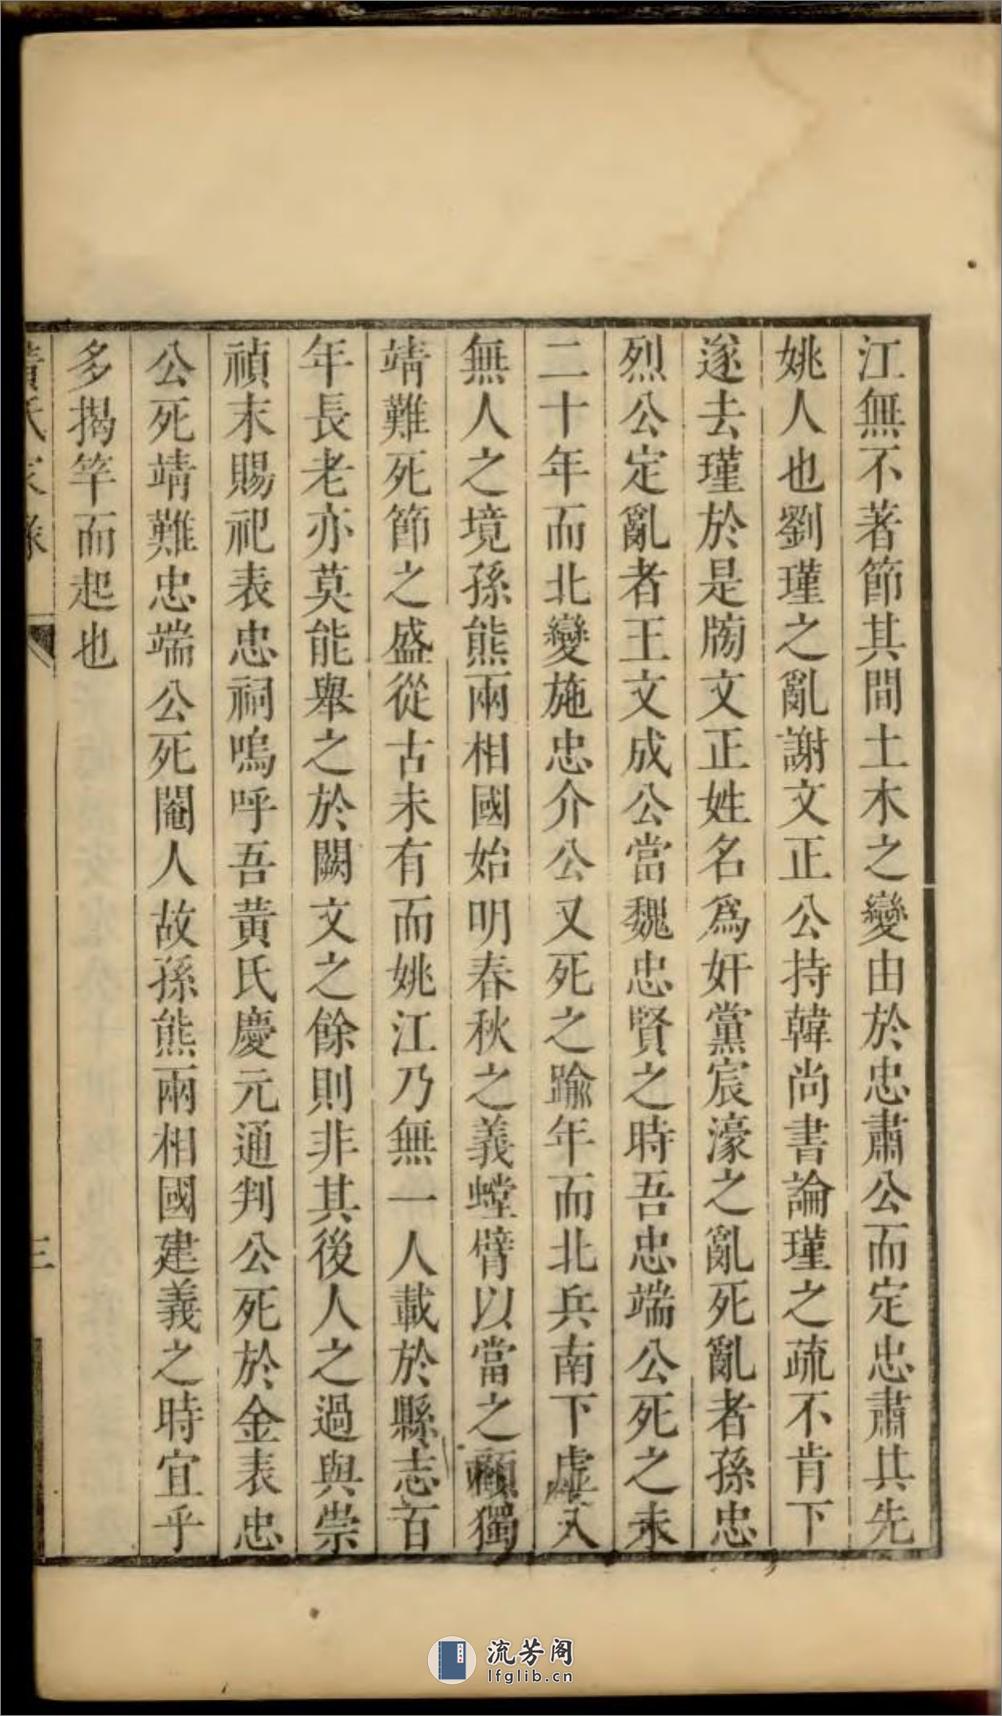 江無不著節其間土木之變由於忠肅公而定忠肅其先
姚人也劉瑾之亂謝文正公持韓尚書論瑾之疏不肯下
遂去瑾於是牓文正姓名爲奸黨宸濠之亂死亂者孫忠
烈公定亂者王文成公當魏忠賢之時吾忠端公死之未
二十年而北變施忠介公又死之踰年而北兵南下虛入
無人之境孫熊兩相國始明春秋之義螳臂以當之顧獨
靖難死節之盛從古未有而姚江乃無一人載於縣志百
年長老亦莫能舉之於闕文之餘則非其後人之過與崇
禎末賜祀表忠祠嗚呼吾黃氏慶元通判公死於金表忠
公死靖難忠端公死閹人故孫熊兩相國建義之時宜乎
多揭竿而起也
黃氏家錄
三
流芳阁
lfglib.cn